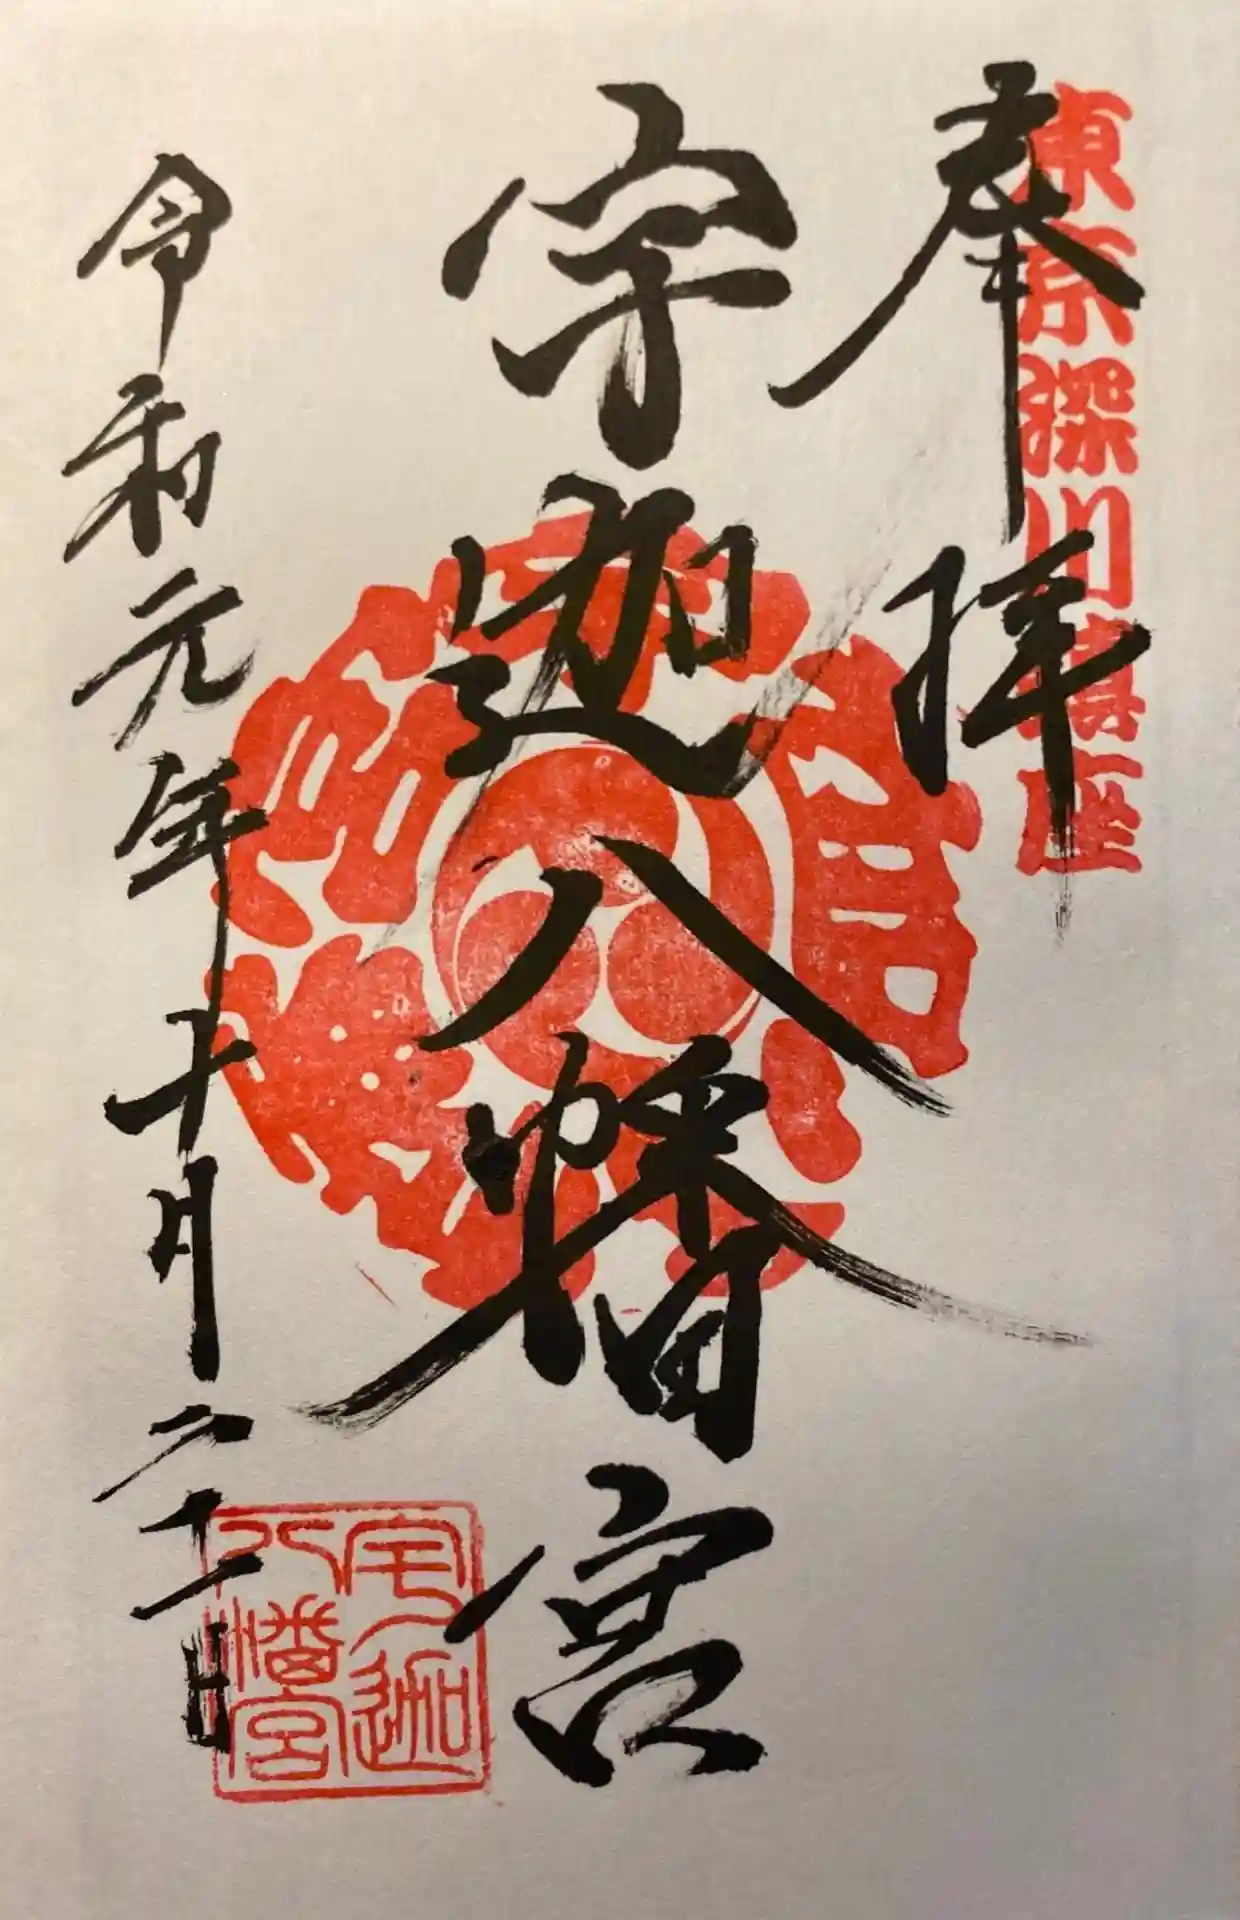 東京深川鎮座
奉拝
宇迦八幡宮
令和元年十月二十二日
宇迦
八幡宮